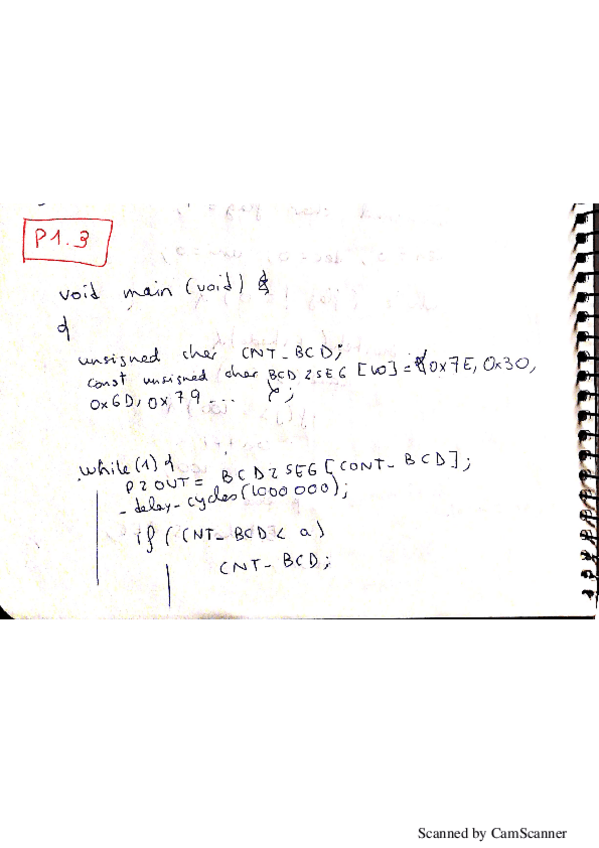 P1.3
void main (void) {
{
unsigned char CNT_BCD;
const unsigned char BCD2SEG [10] = {0x7E, 0x30,
0x6D, 0x79 ... };
while(1) {
P2OUT = BCD2SEG[CONT_BCD];
_delay_cycles(1000000);
if (CNT_BCD < a)
CNT_BCD;
Scanned by CamScanner